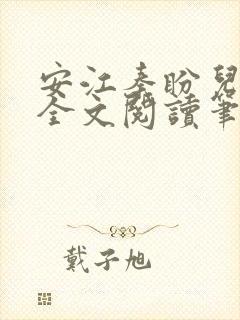 安江秦盼兒
全文閱讀筆
戴子旭